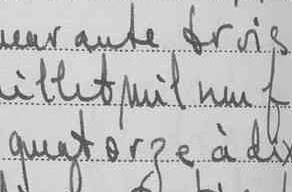 uarante trois
uillet mil neuf
quatorze à dix